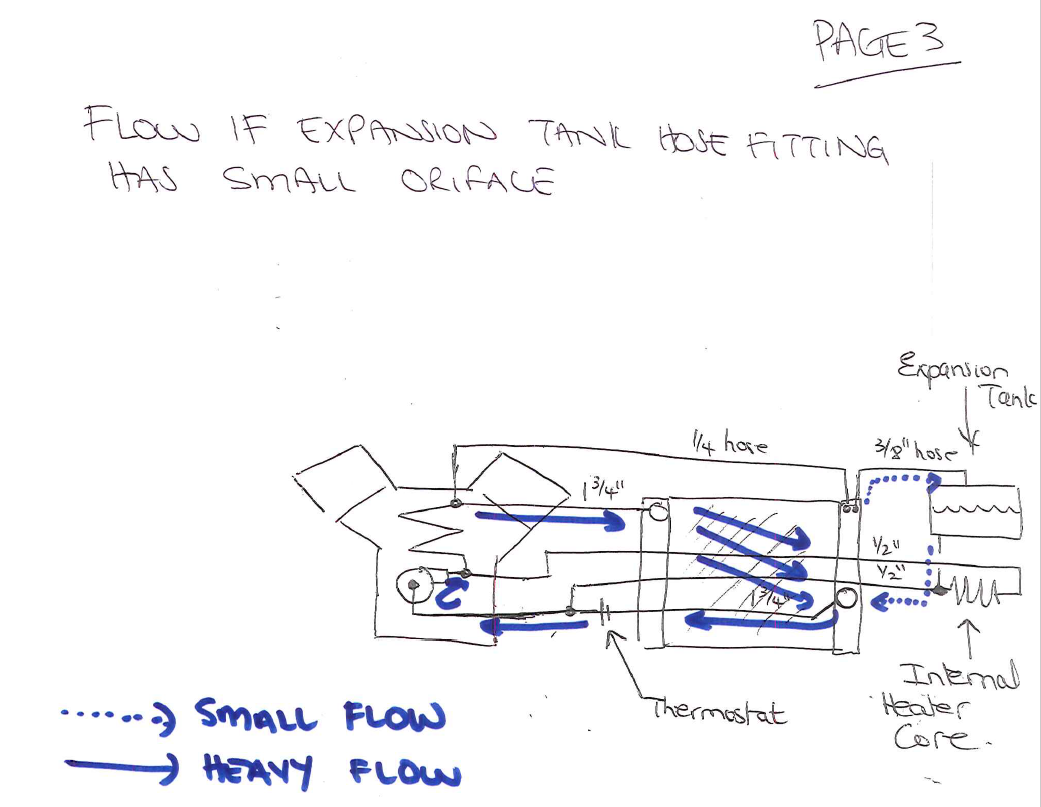 PAGE 3
FLOW IF EXPANSION TANK HOSE FITTING
HAS SMALL ORIFACE
Expansion
Tank
1/4 hose
3/8" hose
1 3/4"
1/2"
1/2"
1 3/4"
Thermostat
Internal
Heater
Core.
SMALL FLOW
HEAVY FLOW